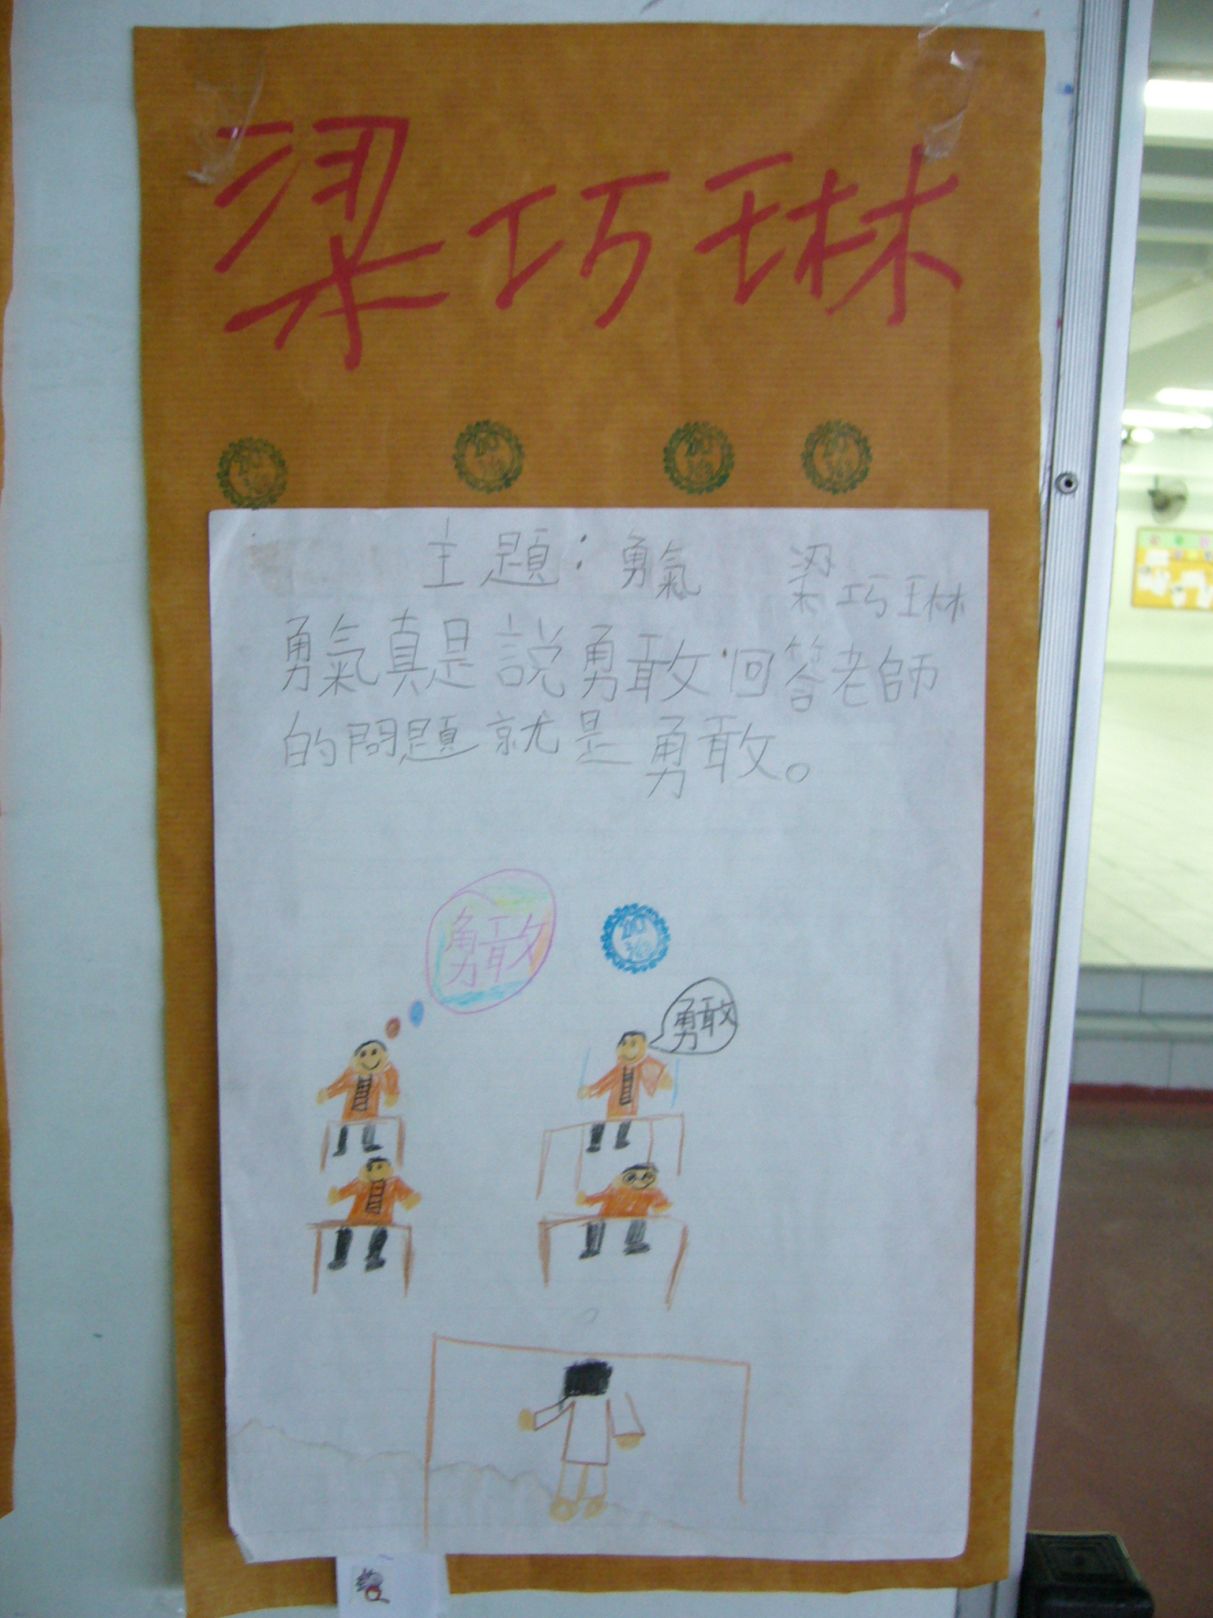 梁巧琳
主題：勇氣 梁巧琳
勇氣真是説勇敢·回答老師
的問題就是勇敢。
勇敢
勇敢